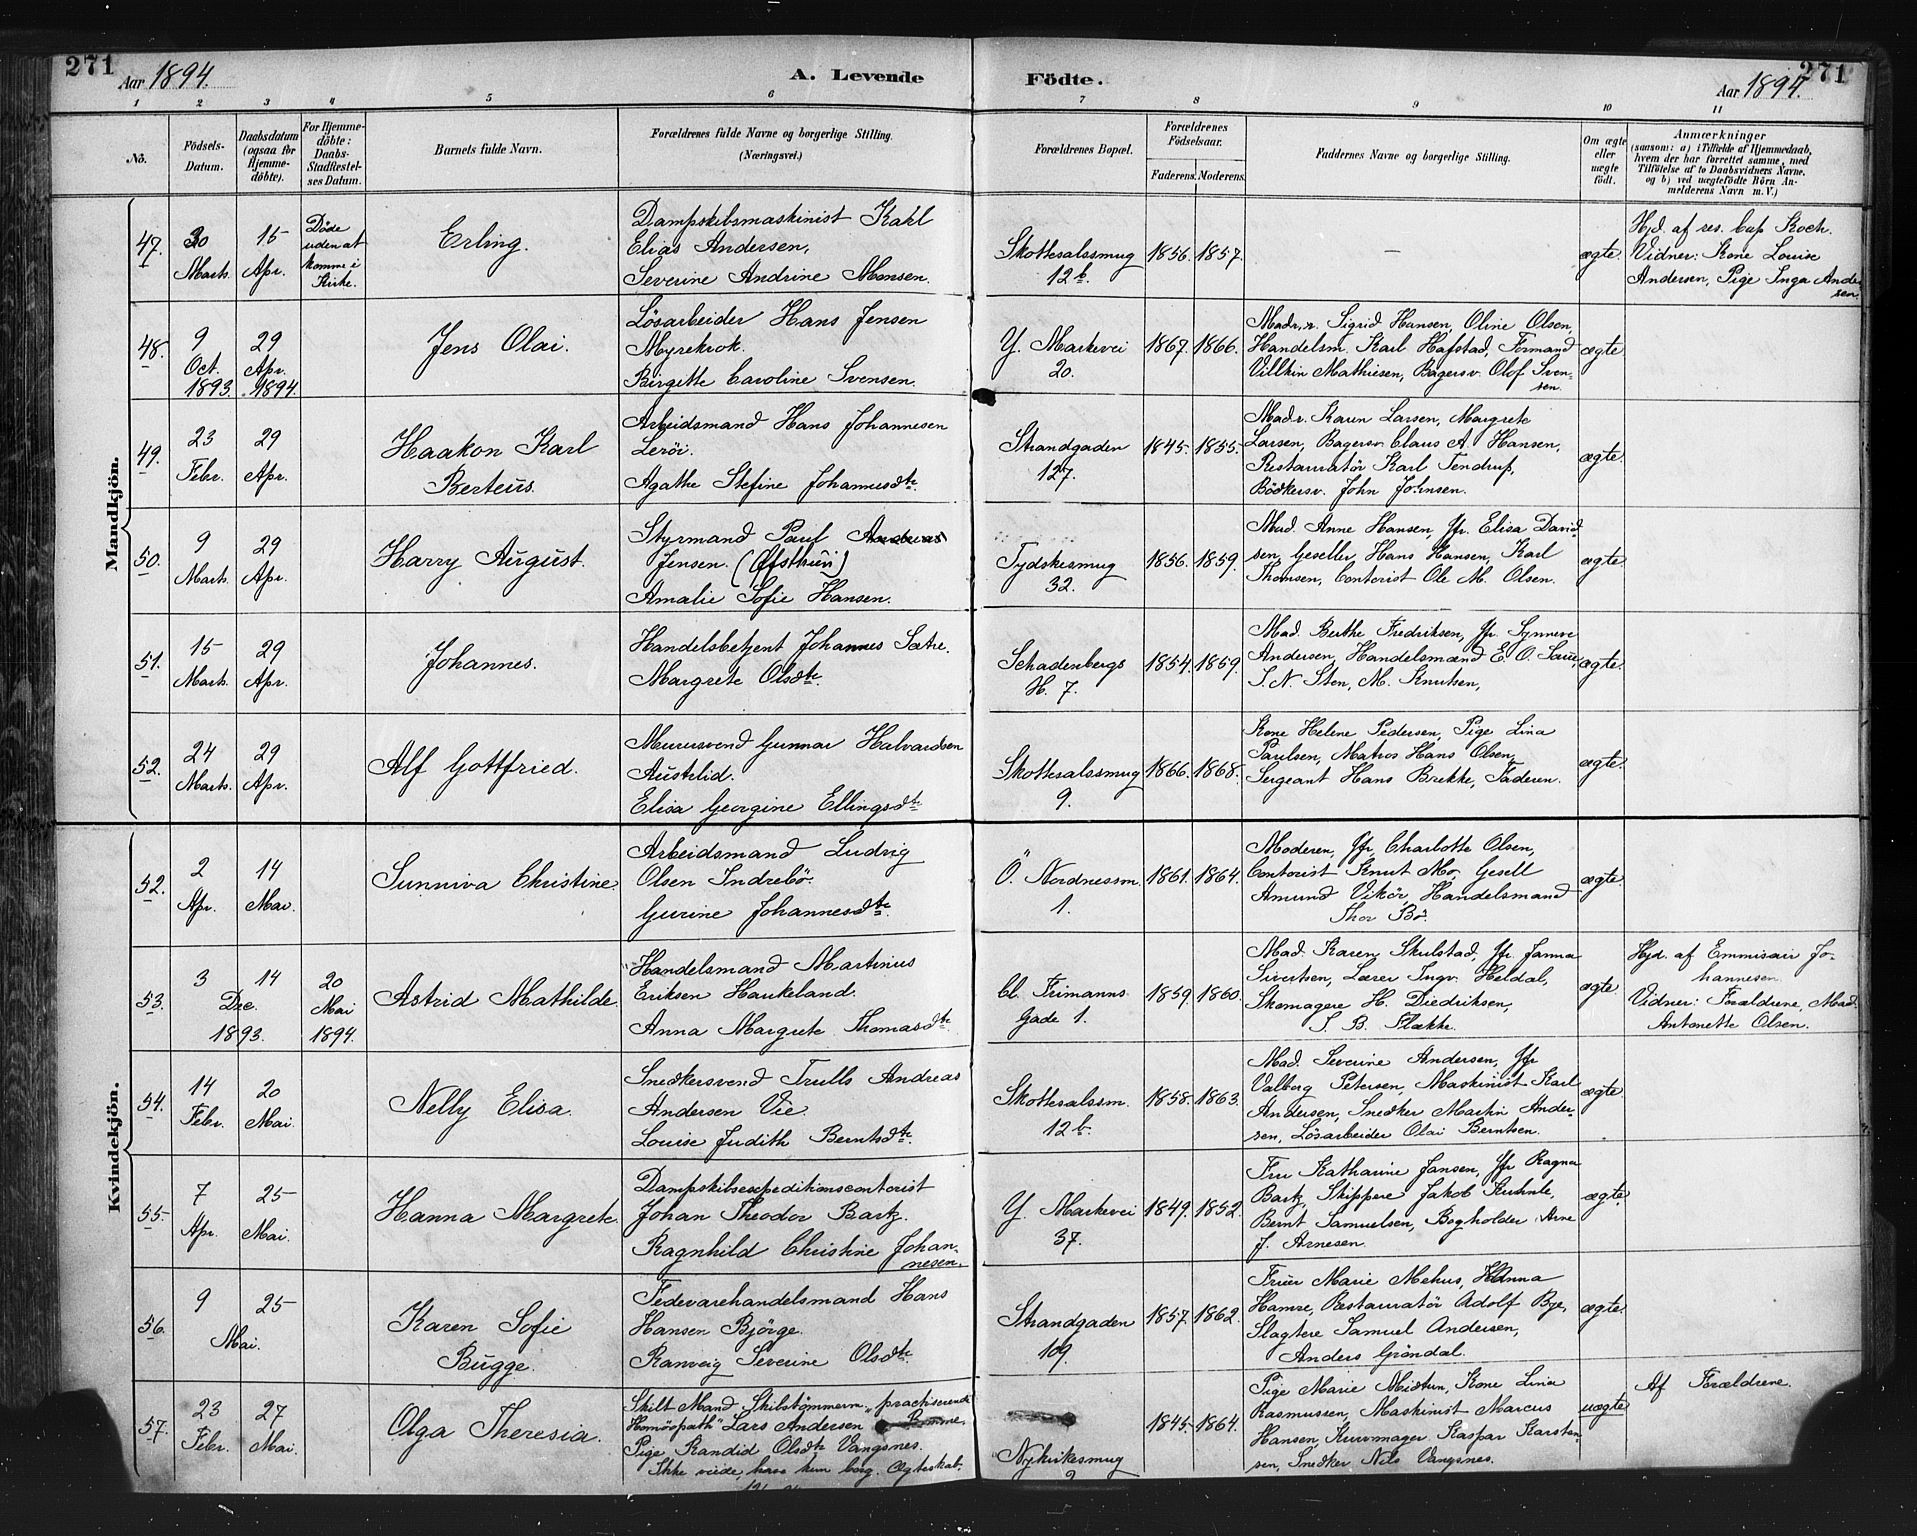 271
Aar 1894.
A. Levende Födte.
Aar 1894.
271
1 2 3 4 5 6 7 8 9 10 11
No.
Födsels-Datum.
Daabsdatum (ogsaa for Hjemme-döbte).
For Hjemme-döbte: Daabs-Stadfæstel-ses Datum.
Barnets fulde Navn.
Forældrenes fulde Navne og borgerlige Stilling.
(Næringsvei.)
Forældrenes Bopæl.
Forældrenes Födselsaar.
Faderens. Moderens.
Faddernes Navne og borgerlige Stilling.
Om ægte eller uægte födt.
Anmærkninger
(saasom: a) i Tilfælde af Hjemmedaab, hvem der har forrettet samme, med Tilföielse af to Daabsvidners Navne, og b) ved uægtefödte Börn An-melderens Navn m. V.)
Mandkjön.
47.
30 Marts.
15 Apr.
Döde uden at komme i Kirke.
Erling.
Dampskibsmaskinist Karl
Elias Andersen,
Severine Andrine Monsen.
Skottesalssmug
12b.
1856. 1857.
—
ægte.
Hjd. af res. Cap Koch.
Vidner: Kone Louise
Andersen, Pige Inga Ander
sen.
48.
9 Oct. 1893.
29 Apr. 1894.
Jens Olai.
Lösarbeider Hans Jensen
Myrekrok.
Birgitte Caroline Svensen.
Y. Markevei
20.
1867. 1866.
Madr. Sigrid Hansen, Oline Olsen,
Handelsm. Karl Hafstad, Formand
Villkin Mathiesen, Bagersv. Olof Sven-
sen.
ægte.
49.
23 Febr.
29 Apr.
Haakon Karl
Berteus.
Arbeidsmand Hans Johannesen
Leröi.
Agathe Stefine Johannesdtr.
Strandgaden
127.
1845. 1855.
Madr. Karen Larsen, Margrete
Larsen, Bagersv. Claus A. Hansen,
Restauratör Karl Tendrup,
Bödkersv. John Johnsen.
ægte.
50.
9 Marts.
29 Apr.
Harry August.
Styrmand Paul Andreas
Jensen.
Amalie Sofie Hansen.
Tydskesmug
32.
1856. 1859.
Mad. Anne Hansen, Jfr. Elisa David
sen, Geseller Hans Hansen, Karl
Thomsen, Contorist Ole M. Olsen.
ægte.
51.
15 Marts.
29 Apr.
Johannes.
Handelsbetjent Johannes Sætre.
Margrete Olsdtr.
Schadenbergs
H. 7.
1854. 1859.
Mad. Berthe Fredriksen, Jfr. Synneve
Andersen, Handelsmænd E. O. Saue,
S. N. Sten, M. Knutsen,
ægte.
52.
24 Marts.
29 Apr.
Alf Gottfried.
Murersvend Gunnar Halvardsen
Austelid.
Elisa Georgine Ellingsdtr.
Skottesalssmug
9.
1866. 1868.
Kone Helene Pedersen, Pige Lina
Paulsen, Matros Hans Olsen,
Sergeant Hans Brekke, Faderen.
ægte.
Kvindekjön.
52.
2 Apr.
14 Mai.
Sunniva Christine.
Arbeidsmand Ludvig
Olsen Indrebö.
Gurine Johannesdtr.
Ö. Nordnessm.
1.
1861. 1864.
Moderen, Jfr. Charlotte Olsen,
Contorist Knut Mo, Gesell
Amund Vikör, Handelsmand
Thor Bö.
ægte.
53.
3 Dec. 1893.
14
20 Mai 1894.
Astrid Mathilde.
Handelsmand Martinus
Eriksen Haukeland.
Anna Margrete Thomasdtr.
Cl. Frimanns
Gade 1.
1859. 1860.
Mad. Karen Skulstad, Jfr. Janna
Sivertsen, Lærer Ingv. Heldal,
Skomagere H. Diedriksen,
S. B. Flække.
ægte.
Hjd. af Emmisær Jo-
hannesen.
Vidner: Forældrene, Mad.
Antonette Olsen.
54.
14 Febr.
20 Mai.
Nelly Elisa.
Snedkersvend Trulls Andreas
Andersen Vie.
Louise Judith Berntsdtr.
Skottesalssm.
12b.
1858. 1863.
Mad. Severine Andersen, Jfr
Valborg Petersen, Maskinist Karl
Andersen, Snedker Martin Ander-
sen, Lösarbeider Olai Berntsen.
ægte.
55.
7 Apr.
25 Mai.
Hanna Margrete.
Dampskibsexpeditionscontorist
Johan Theodor Bartz.
Ragnhild Christine Johan-
nesen.
Y. Markevei
37.
1849. 1852.
Fru Katharine Jansen, Jfr Ragna
Bartz, Skippere Jakob Kuhnle,
Bernt Samuelsen, Bogholder Arne
J. Arnesen.
ægte.
56.
9 25
Mai.
Karen Sofie
Bugge.
Fedevarehandelsmand Hans
Hansen Björge.
Ranveig Severine Olsdtr.
Strandgaden
109.
1857. 1862.
Fruer Marie Mehus, Hanna
Hamre, Restauratör Adolf Bye,
Slagtere Samuel Andersen,
Anders Gröndal.
ægte.
57.
23 Febr.
27 Mai.
Olga Theresia.
Skilt Mand Skibstömmerm. "practiserende
Homöopath" Lars Andersen
Pige Kandid Olsdtr Vangsnes.
Ikke viede, have kun borg. Ægteskab.
Nykirkesmug
1845. 1864.
Pige Marie Midtun, Kone Lina
Rasmussen, Maskinist Marcus
Hansen, Kurvmager Kaspar Karsten-
sen, Snedker Nils Vangsnes.
uægte
Af Forældrene.